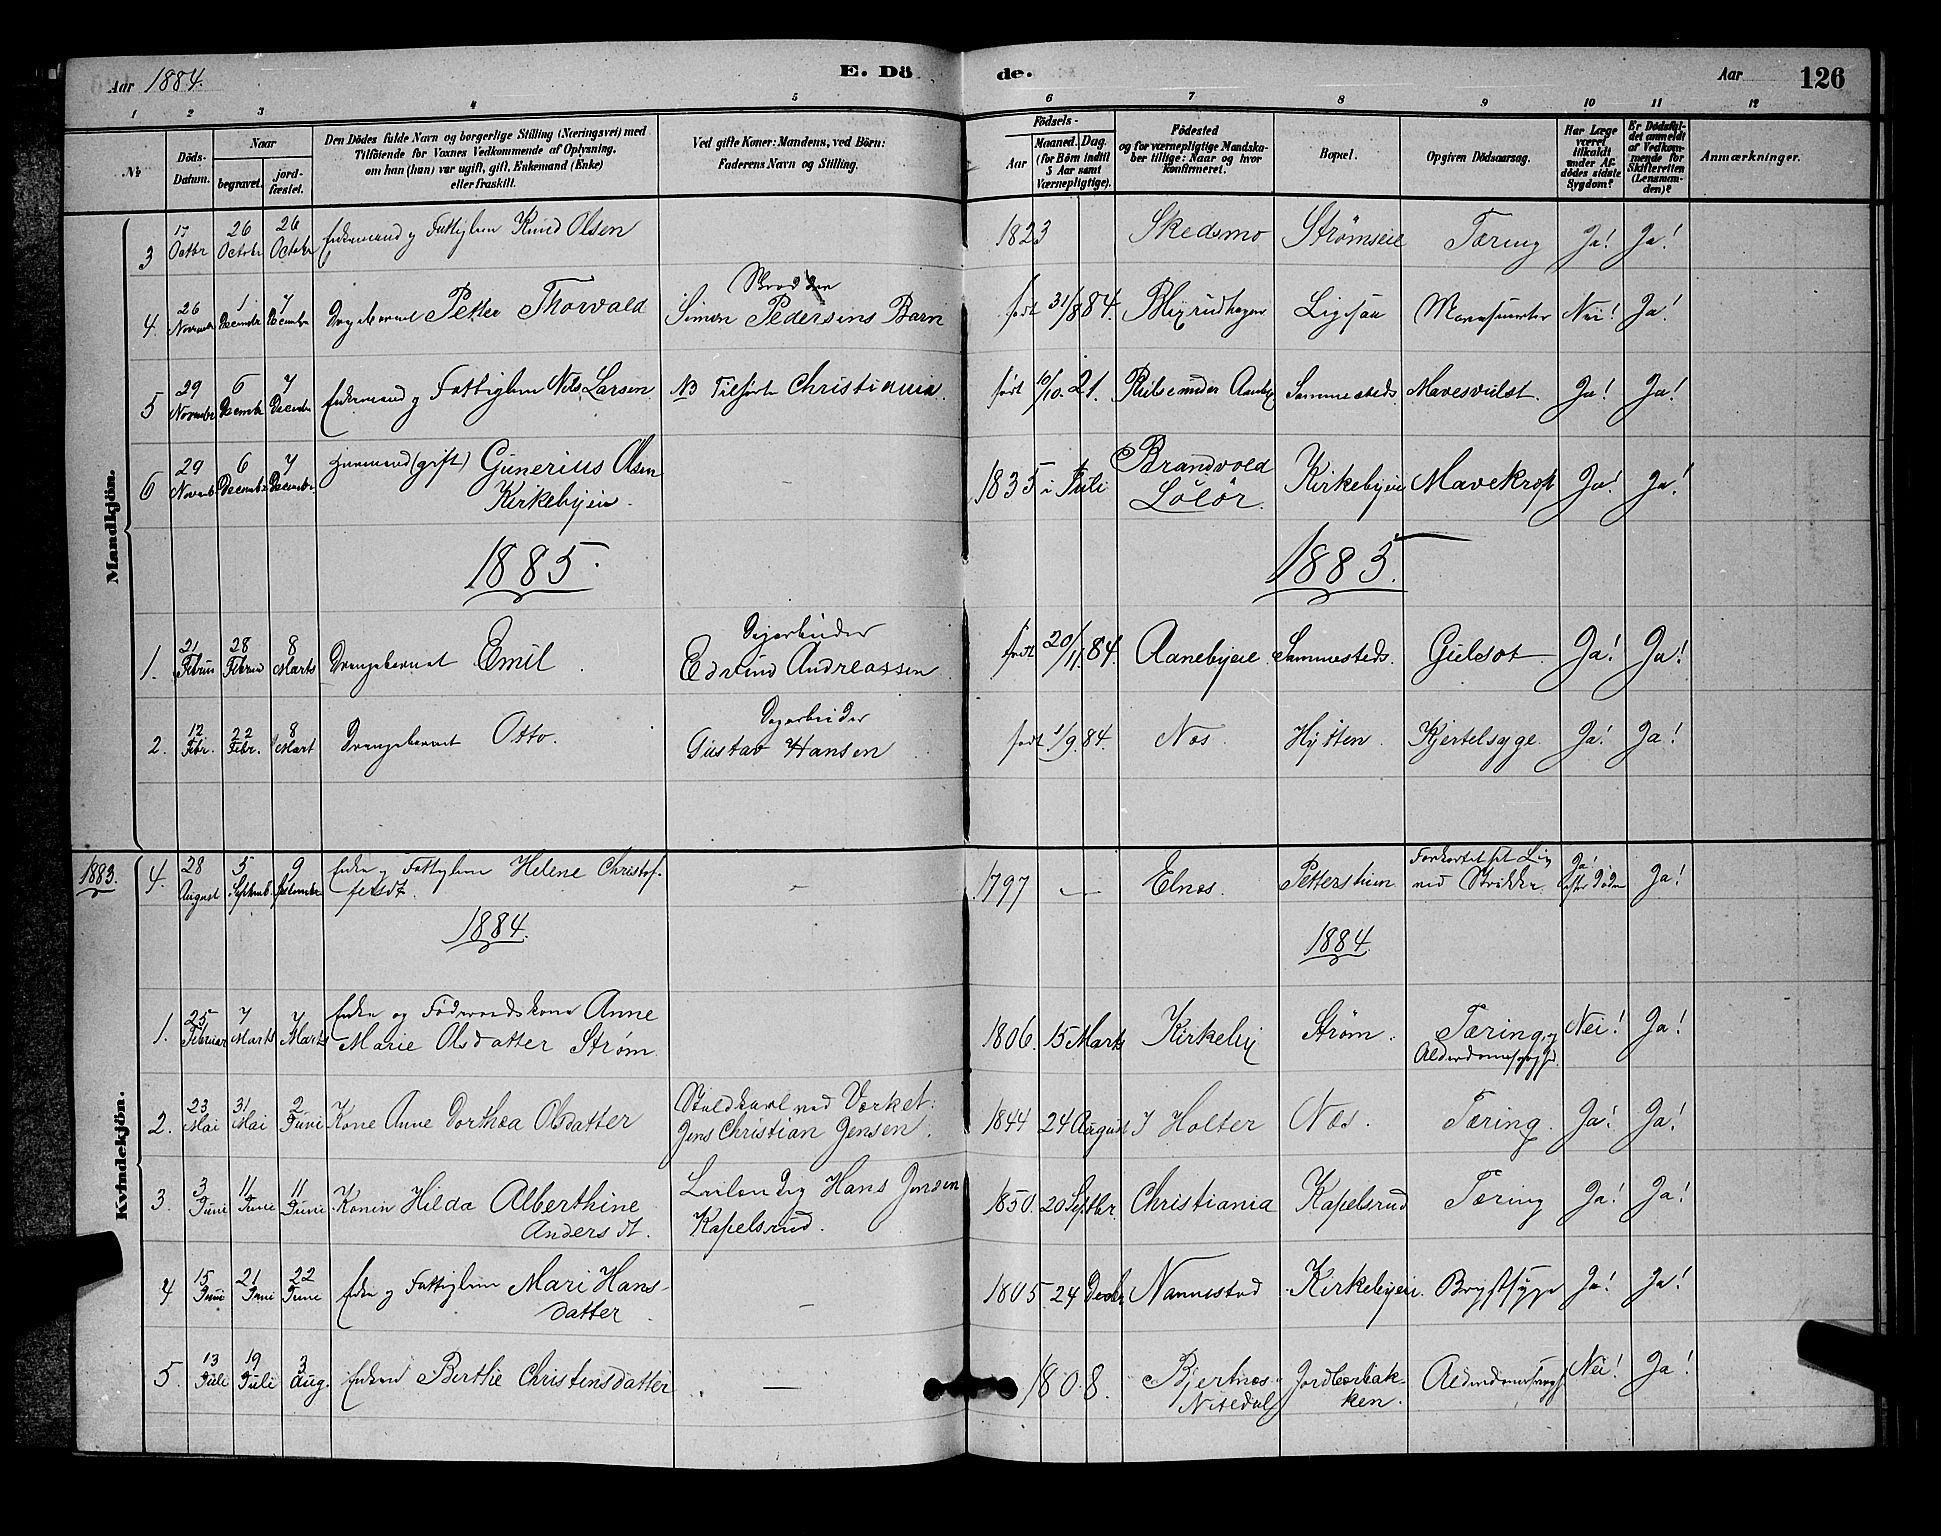 Aar 1884.
E. Dö de.
Aar 126
1 2 3 4 5 6 7 8 9 10 11 12
Nr.
Döds-Datum.
Naar
begravet.
jord-fæstet.
Den Dödes fulde Navn og borgerlige Stilling (Næringsvei) med
Tilföiende for Voxnes Vedkommende af Oplysning,
om han (hun) var ugift, gift, Enkemand (Enke)
eller fraskilt.
Ved gifte Koner: Mandens, ved Börn:
Faderens Navn og Stilling.
Födsels-
Aar
Maaned. Dag.
(for Börn indtil
5 Aar samt
Værnepligtige).
Födested
og for værnepligtige Mandska-
ber tillige: Naar og hvor
konfirmeret.
Bopæl.
Opgiven Dödsaarsag.
Har Læge
været
tilkaldt
under Af-
dödes sidste
Sygdom?
Er Dödsfal-
det anmeldt
af Vedkom-
mende for
Skifteretten
(Lensman-
den)?
Anmærkninger.
Mandkjön.
3 17 Octbr 26 Octobr 26 Octobr Enkemand og Fattiglem Knud Olsen 1823 Skedsmo Strömseie Tæring Ja! Ja!
4. 26 Novembr 1 Decembr 7 Decembr Drengebarnet Petter Thorvald
Simon Pedersens Barn
født 31/8 84. Nei! Ja!
5 29 Novembr 6 Decembr 7 Decembr Enkemand og Fattiglem Nils Larsen NB Tilført Christiania. født 10/10. 21. Sammesteds. Mavesvulst. Ja! Ja!
6 29 Novemb. 6 Decembr 7 Decembr. Huusmand (gift) Gunerius Olsen
Kirkebyeie.
1835 i Juli Brandvold
Soløer.
Kirkebyeie Mavekræft Ja! Ja!
1885. 1885.
1. 21 Februar 28 Februar 8 Marts Drengebarnet Emil.
Dagarbeider
Edvind Andreassen
født 20/11. 84. Aanebyeie. Sammesteds. Gulsot. Ja! Ja!
2. 12 Febr. 22 Febr. 8 Mart Drengebarnet Otto.
Dagarbeider
Gustav Hansen
født 1/9. 84. Næs. Hytten. Kjertelsyge. Ja! Ja!
Kvindekjön.
1883. 4. 28 August 5 Septemb. 9 Septembr Enke og Fattiglem Helene Christof-
fersdt.
- 1797 — Elnæs. Petterstuen Forkortet sit Liv
ved Strikke. Ja!
efter Døden Ja!
1884. 1884
1. 25 Februar 7 Marts 7 Marts Enke og Føderaadskone Anne
Marie Olsdatter Strøm.
1806. 15 Marts Kirkeby Strøm. Tæring og
Alderdomssvaghed. Nei! Ja!
2. 23 Mai 31 Mai 2 Juni Kone Anne Dorthea Olsdatter
Staldkarl ved Værket:
Jens Christian Jensen.
1844 24 August I Holter Næs. Tæring. Ja! Ja!
3. 3 Juni 11 Juni 11 Juni Konen Hilda Alberthine
Andersdt.
Leilending Hans Jensen
Kapelsrud.
1850. 20 Septbr. Christiania Kapelsrud Tæring Ja! Ja!
4 15 Juni 21 Juni 22 Juni Enke og Fattiglem Mari Hans-
datter.
- 1805 24 Decbr Nannestad Kirkebyeie. Brystsyge Ja! Ja!
5. 13 Juli 19 Juli 3 Aug. Enken Berthe Christensdatter. — 1808. Bjertnæs
Nitedal
Jordbærbak-
ken.
Alderdomssvagh Nei! Ja!